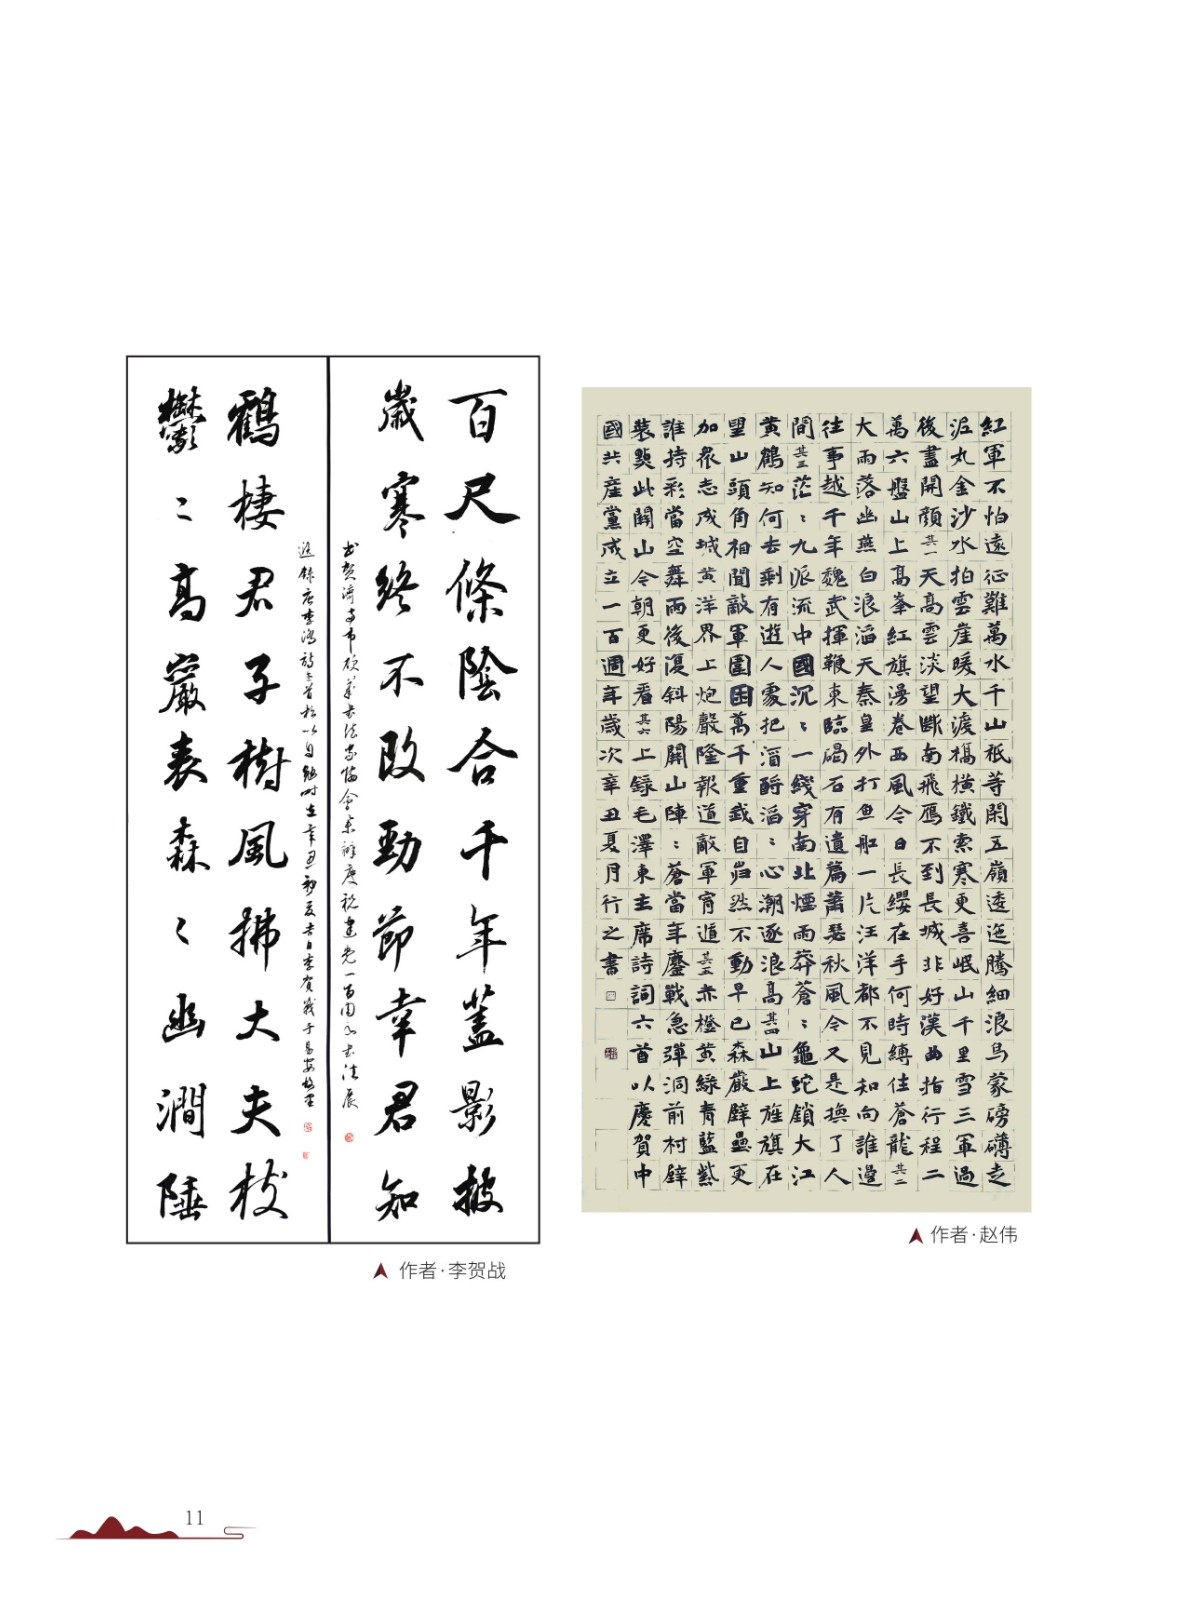 百尺條陰合千年蓋影披
歲寒終不改勁節幸君知
書賀濟寧市硬筆書法家協會慶祝建黨一百周年書法展
錄唐李嶠詩一首松以自勉時在辛丑初夏吉日李賀戰于易安
鶴棲君子樹風拂大夫枝
鬱〻高巖表森〻幽澗陲
作者·李贺战
紅軍不怕遠征難萬水千山祇等閑五嶺逶迤騰細浪烏蒙磅礴走
泥丸金沙水拍雲崖暖大渡橋橫鐵索寒更喜岷山千里雪三軍過
後盡開顏其一天高雲淡望斷南飛雁不到長城非好漢屈指行程二
萬六盤山上高峯紅旗漫卷西風今日長纓在手何時縛住蒼龍其二
大雨落幽燕白浪滔天秦皇外打魚船一片汪洋都不見知向誰邊
往事越千年魏武揮鞭東臨碣石有遺篇蕭瑟秋風今又是換了人
間其三茫〻九派流中國沉〻一綫穿南北煙雨莽蒼〻龜蛇鎖大江
黃鶴知何去剩有遊人處把滔酹滔〻心潮逐浪高其四山上旌旗在
望山頭角相聞敵軍圍困萬千重我自巋然不動早已森嚴壁壘更
加衆志成城黃洋界上炮聲隆報道敵軍宵遁其五赤橙黃綠青藍紫
誰持彩當空舞雨後復斜陽關山陣〻蒼當年鏖戰急彈洞前村壁
裝點此關山今朝更好看其六上錄毛澤東主席詩詞六首以慶賀中
國共產黨成立一百週年歲次辛丑夏月行之書
作者·赵伟
11